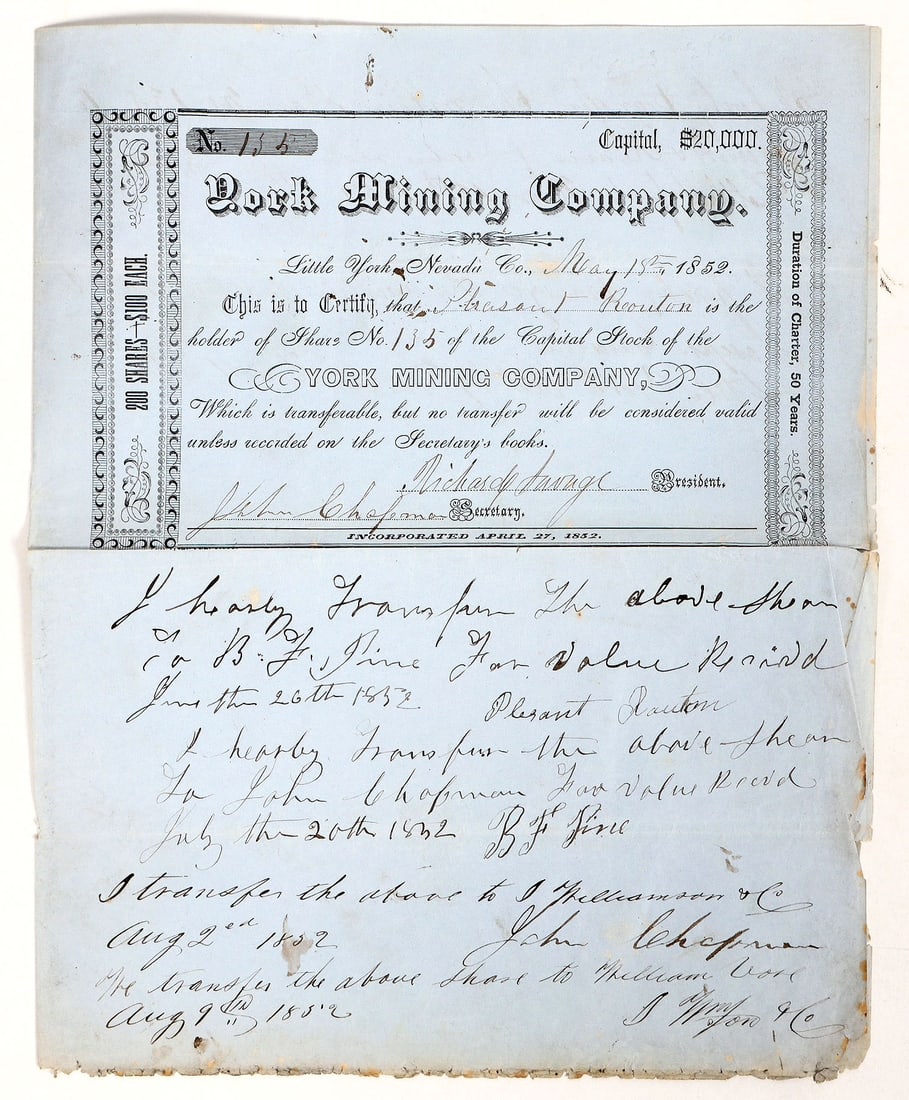 No. 135
Capital, $20,000.
York Mining Company.
Little York, Nevada Co., May 15th, 1852.
This is to Certify, that Pleasant Routon is the
holder of Share No. 135 of the Capital Stock of the
YORK MINING COMPANY,
Which is transferable, but no transfer will be considered valid
unless recorded on the Secretary's books.
Richard Savage President.
John Chapman Secretary.
INCORPORATED APRIL 27, 1852.
200 SHARES $100 EACH.
Duration of Charter, 50 Years.
I hearby Transfur The above Shear
To B. F. Pine For value
June the 26th 1852 Plesant Routon
I hearby Transfur the above Shear
To John Chapman For value
July the 20th 1852 B F Pine
I transfer the above to J Williamson & Co
Aug 2ed 1852 John Chapman
We transfer the above share to William
Aug 9th 1852 J Wmson & Co